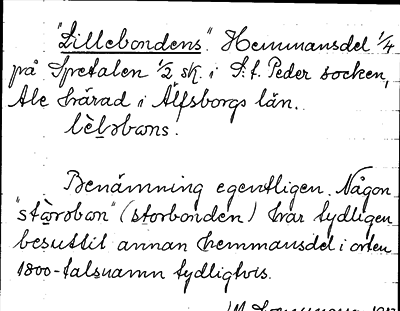 "Lillebondens". Hemmansdel 1/4
på Spetalen 1/2 sk. i S:t. Peder socken,
Ale härad i Älfsborgs län.
lèlɔbωns.
Benämning egentligen. Någon
"stωrɔbon" (storbonden) har tydligen
besuttit annan hemmansdel i orten
1800-talsnamn tydligtvis.